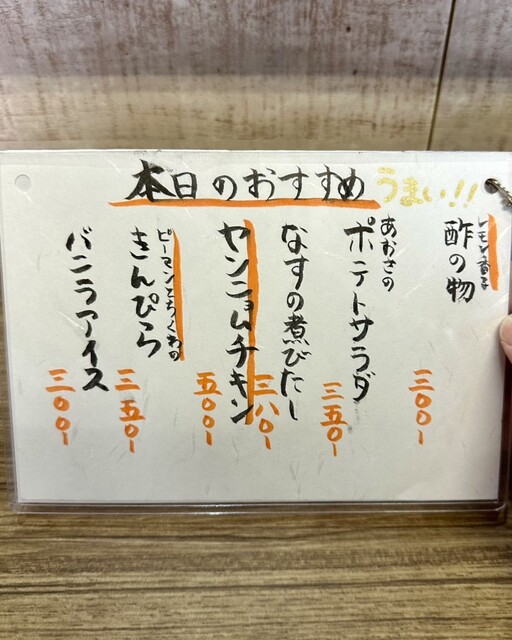 本日のおすすめ
うまい!!
レモン香る
酢の物
三〇〇-
あおさの
ポテトサラダ
三五〇-
なすの煮びたし
三八〇-
ヤンニョムチキン
五〇〇-
ピーマンとちくわの
きんぴら
三五〇-
バニラアイス
三〇〇-